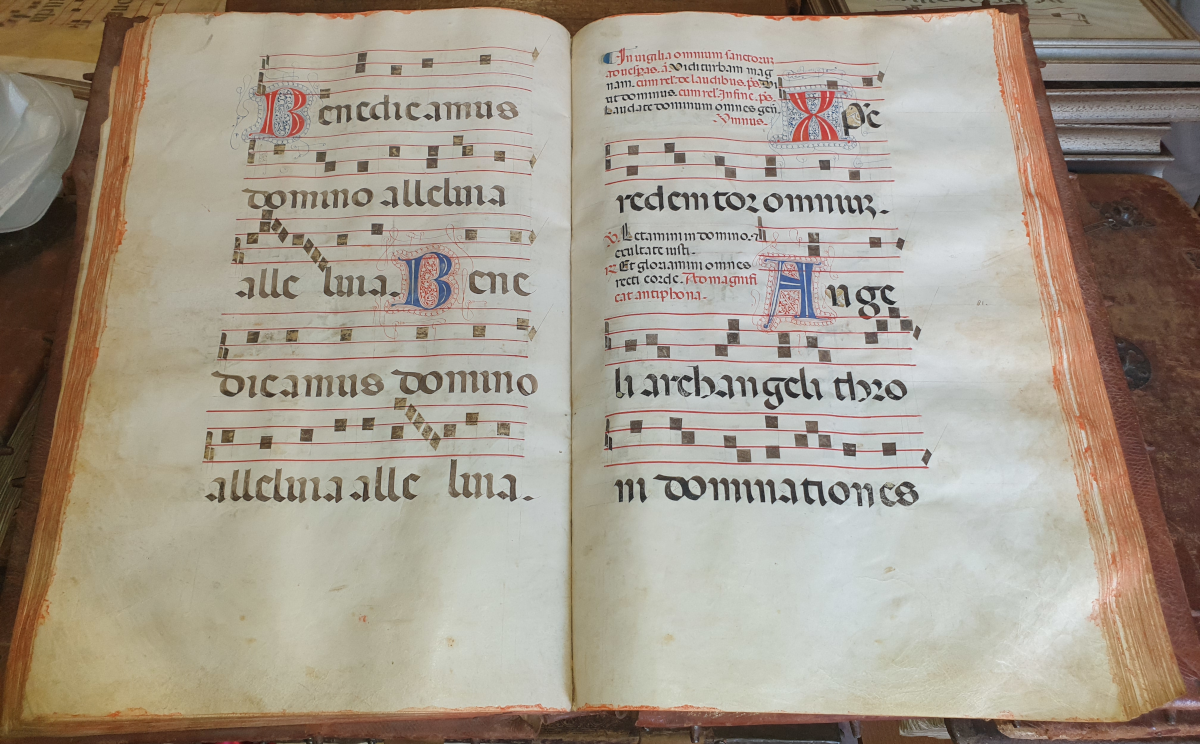 Benedicamus
domino alleluia
alle luia. Bene
dicamus domino
alleluia alle luia.
In vigilia omnium sanctorum
ad vesperas. a. Vidi turbam mag
nam. cum rel. de laudibus. ps. Di
xit dominus. cum rel. In fine. ps.
Laudate dominum omnes gen.
Ymnus.
Xpe
redemtor omnium.
V. Letamini in domino. et
exultate iusti.
R. Et gloriamini omnes
recti corde. Ad magnifi
cat antiphona.
Ange
li archangeli thro
ni dominationes